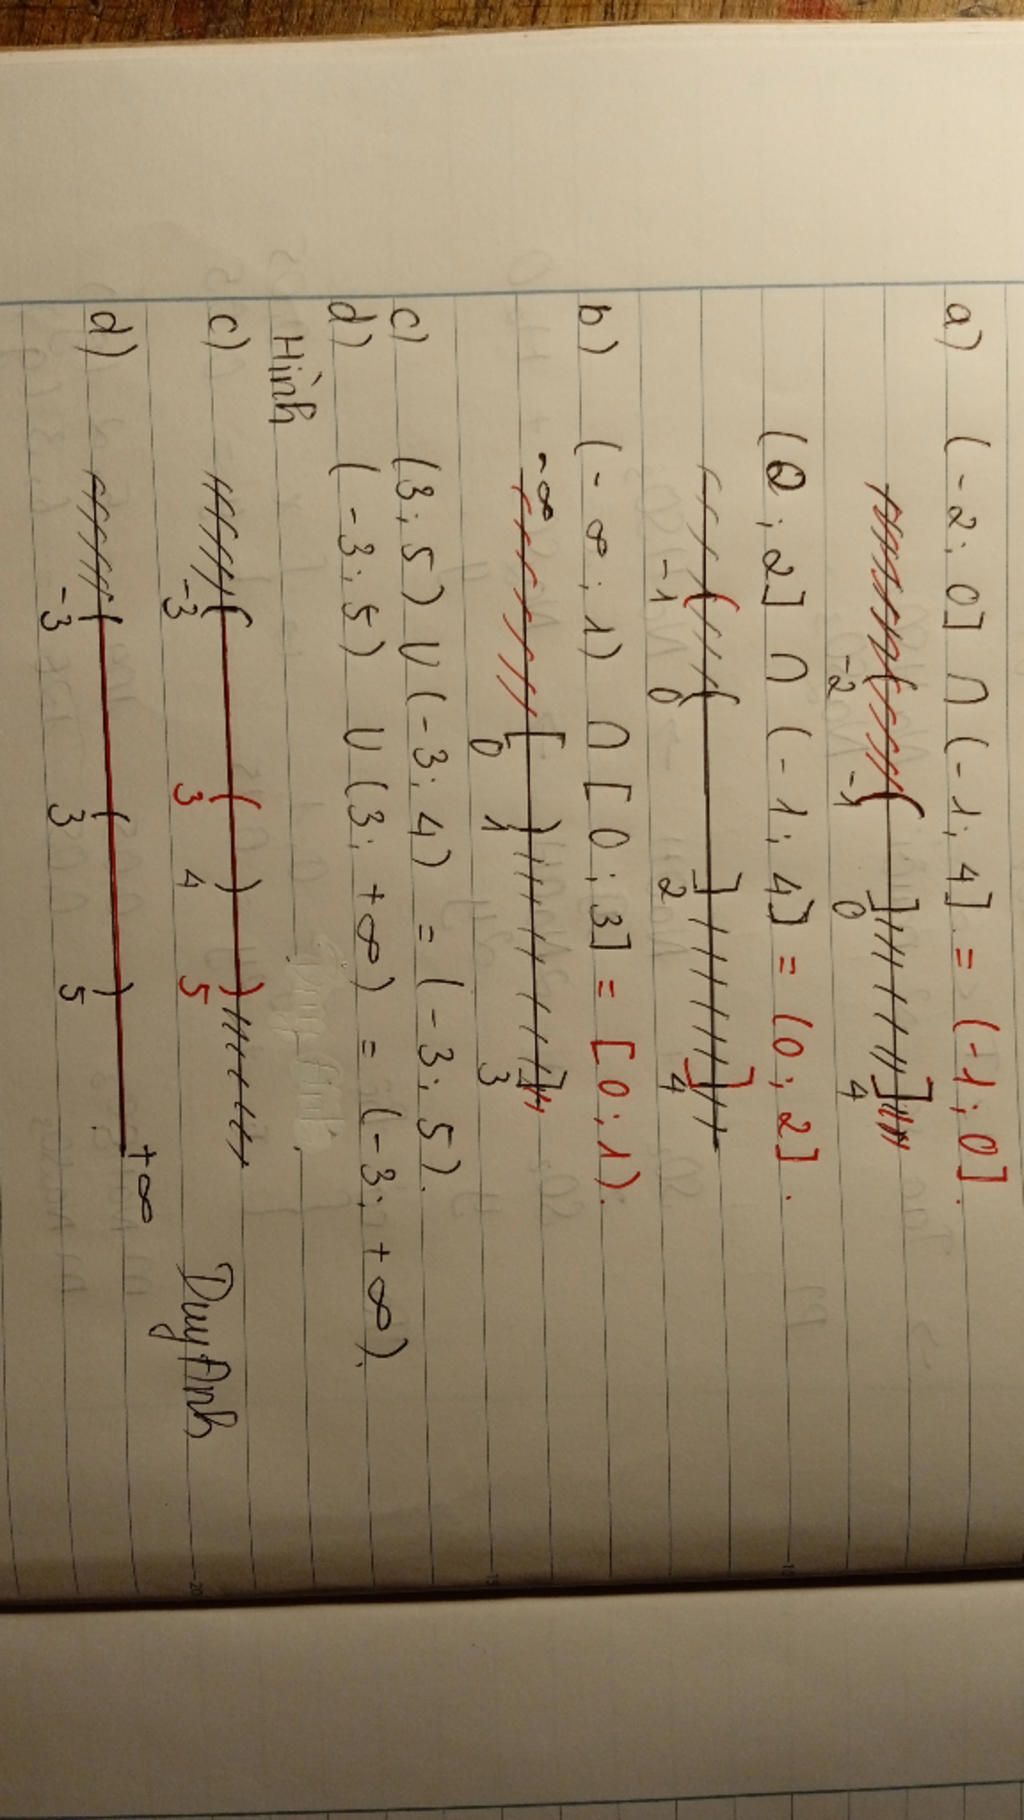 a) (-2; 0] ∩ (-1; 4] = (-1; 0].
-2 -1 0 4
(0; 2] ∩ (-1; 4] = (0; 2].
-1 0 2 4
b) (-∞; 1) ∩ [0; 3] = [0; 1).
-∞ 0 1 3
c) (3; 5) ∪ (-3; 4) = (-3; 5).
d) (-3; 5) ∪ (3; +∞) = (-3; +∞).
Hình
c) -3 3 4 5
d) -3 3 5 +∞
Duy Anh